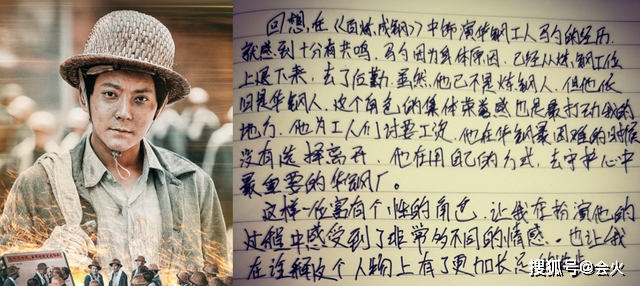 回想在《百炼成钢》中饰演华钢工人马勺的经历,
就感到十分有共鸣,马勺因为身体原因,已经从炼钢工位
上退下来,去了后勤.虽然他已不是炼钢人,但他依
旧是华钢人。这个角色的集体荣誉感也是最打动我的
地方.他为工人们讨要工资,他在华钢最困难的时候
没有选择离开,他在用自己的方式,去守护心中
最重要的华钢厂。
这样一位富有个性的角色,让我在扮演他的
过程中感受到了非常多不同的情感.也让我
在诠释这个人物上有了更加长足的
搜狐号@会火